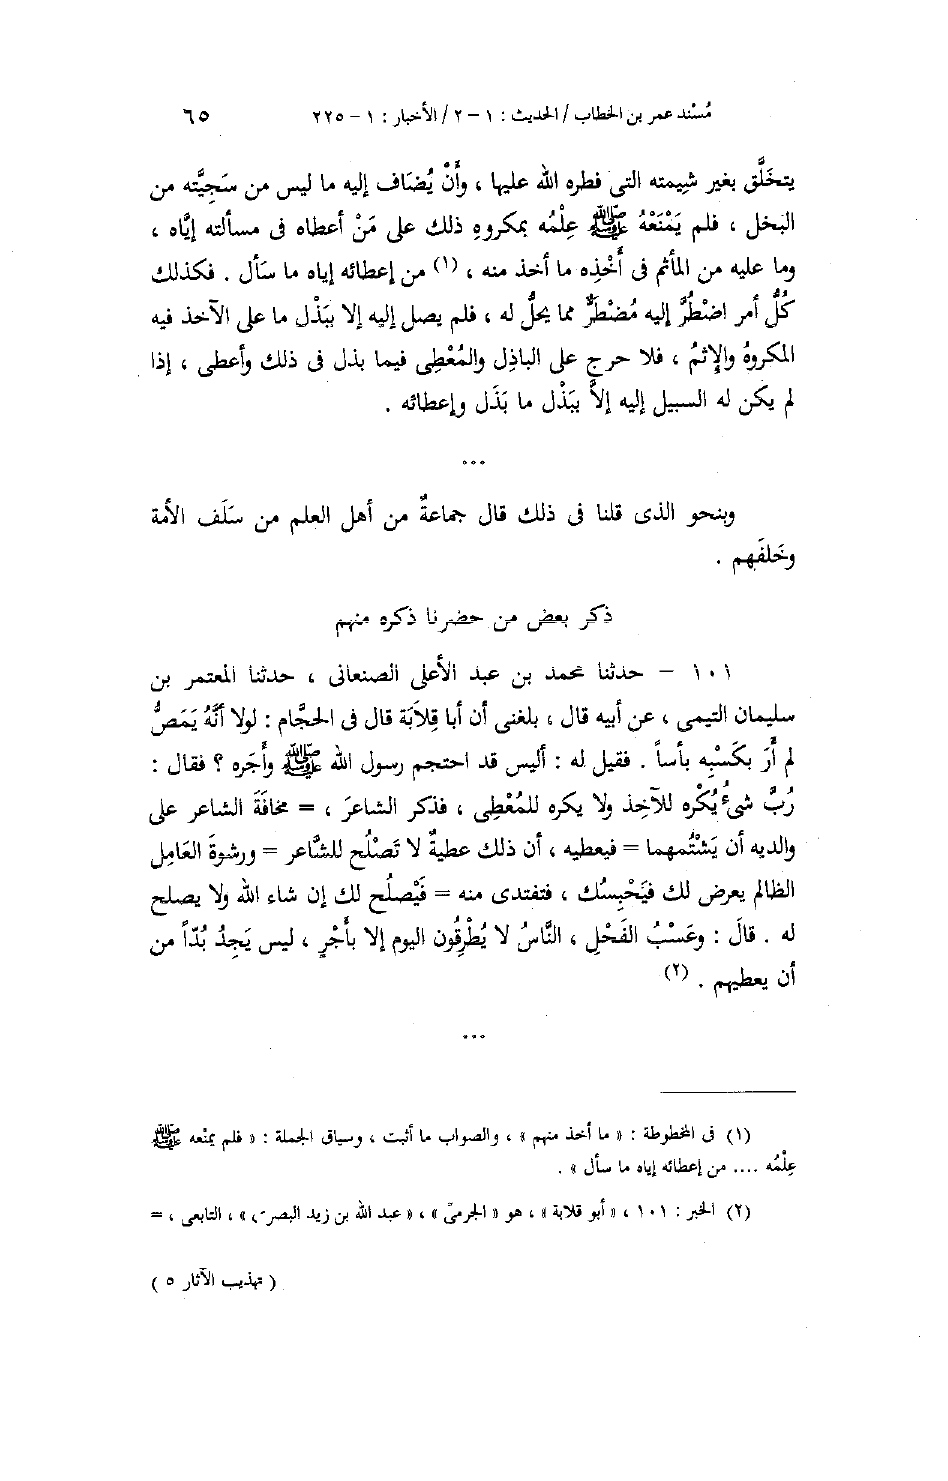 مُسْند عمر بن الخطاب / الحديث : ١ – ٢ / الأخبار : ١ – ٢٢٥ ٦٥
يتخلَّق بغير شِيمته التى فطره الله عليها ، وأَنْ يُضاف إليه ما ليس من سَجِيَّته من
البخل ، فلم يَمْنَعْهُ ﷺ عِلْمُه بمكروهِ ذلك على مَنْ أعطاه فى مسألته إيَّاه ،
وما عليه من المأثم فى أَخْذِه ما أخذ منه ، (١) من إعطائه إياه ما سَأل . فكذلك
كُلُّ أمر اضْطُرَّ إليه مُضْطَرٌّ مما يحلُّ له ، فلم يصل إليه إلا ببَذْل ما على الآخذ فيه
المكروهُ والإِثمُ ، فلا حرج على الباذِل والمُعْطِى فيما بذل فى ذلك وأعطى ، إذا
لم يكن له السبيل إليه إلاَّ ببَذْل ما بَذَل وإعطائه .
...
وبنحو الذى قلنا فى ذلك قال جماعةٌ من أهل العلم من سَلَف الأمة
وخَلَفَهم .
ذكر بعض من حضرنا ذكره منهم
١٠١ – حدثنا محمد بن عبد الأعلى الصنعانى ، حدثنا المعتمر بن
سليمان التيمى ، عن أبيه قال ، بلغنى أن أبا قِلاَبَة قال فى الحجَّام : لولا أنَّهُ يَمَصُّ
لم أَرَ بكَسْبِه بأساً . فقيل له : أليس قد احتجم رسول الله ﷺ وأَجَره ؟ فقال :
رُبَّ شىءُ يُكْره للآخِذ ولا يكره للمُعْطِى ، فذكر الشاعرَ ، = مخافَةَ الشاعر على
والديه أن يَشْتُمهما = فيعطيه ، أن ذلك عطيةٌ لا تَصْلُح للشَّاعر = ورشوةَ العَامِل
الظالم يعرض لك فيَحْبِسُك ، فتفتدى منه = فَيَْصلُح لك إن شاء الله ولا يصلح
له . قالَ : وعَسْبُ الفَحْلِ ، النَّاسُ لا يُطْرِقُون اليوم إلا بأَجْرٍ ، ليس يَجِدُ بُدّاً من
أن يعطيهم . (٢)
...
(١) فى المخطوطة : « ما أخذ منهم » ، والصواب ما أثبت ، وسياق الجملة : « فلم يمنْعه ﷺ
عِلْمُه .... من إعطائه إياه ما سأل » .
(٢) الخبر : ١٠١ ، « أبو قلابة » ، هو « الجرمىّ » ، « عبد الله بن زيد البصرى » ، التابعى ، =
( تهذيب الآثار ٥ )